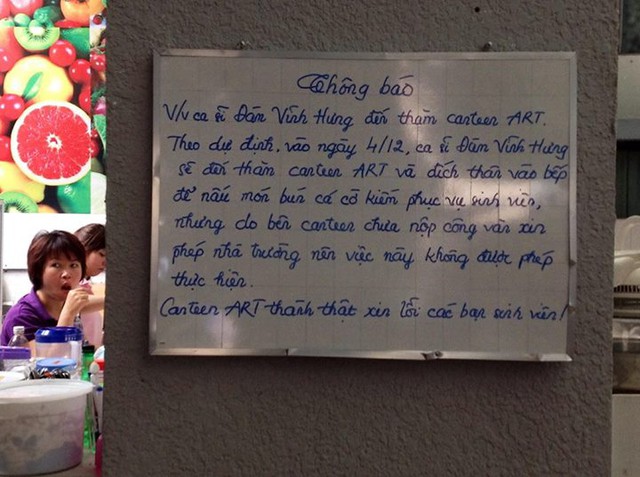 Thông báo
V/v ca sĩ Đàm Vĩnh Hưng đến thăm canteen ART.
Theo dự định, vào ngày 4/12, ca sĩ Đàm Vĩnh Hưng
sẽ đến thăm canteen ART và đích thân vào bếp
để nấu món bún cá cờ kiếm phục vụ sinh viên,
nhưng do bên canteen chưa nộp công văn xin
phép nhà trường nên việc này không được phép
thực hiện.
Canteen ART thành thật xin lỗi các bạn sinh viên!